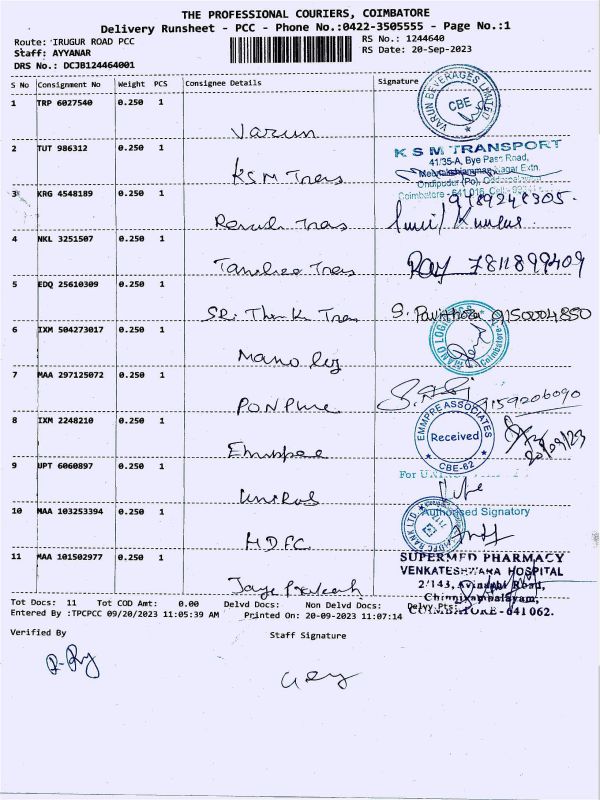 THE PROFESSIONAL COURIERS, COIMBATORE
Delivery Runsheet - PCC - Phone No.:0422-3505555 - Page No.:1
Route: IRUGUR ROAD PCC
RS No.: 1244640
Staff: AYYANAR
RS Date: 20-Sep-2023
DRS No.: DCJB124464001
S No Consignment No Weight PCS Consignee Details Signature
1 TRP 6027540 0.250 1
VARUN BEVERAGES LIMITED
CBE
Varun
2 TUT 986312 0.250 1
KSM TRANSPORT
41/35-A, Bye Pass Road,
Nagar Extn.
Ondipudur (Po),
Coimbatore - 641 016.
KSM Trans
3 KRG 4548189 0.250 1
9789248305.
Sunil Kumar.
Trans
4 NKL 3251507 0.250 1
Trans
Ray 7811899409
5 EDQ 25610309 0.250 1
Sri Trans
S. Pavithra 9150004850
6 IXM 504273017 0.250 1
Coimbatore
Mano
7 MAA 297125072 0.250 1
9159206090
PON Pure
8 IXM 2248210 0.250 1
EMMPRE ASSOCIATES
Received
CBE-62
20/09/23
9 UPT 6060897 0.250 1
For
10 MAA 103253394 0.250 1
Authorised Signatory
HDFC BANK LTD.
HDFC
11 MAA 101502977 0.250 1
SUPERMED PHARMACY
VENKATESHWARA HOSPITAL
2/143, Avinashi Road,
Chinniyampalayam,
COIMBATORE-641 062.
Jaya Prakash
Tot Docs: 11 Tot COD Amt: 0.00 Delvd Docs: Non Delvd Docs: Delvy Pts:
Entered By :TPCPCC 09/20/2023 11:05:39 AM Printed On: 20-09-2023 11:07:14
Verified By
Staff Signature